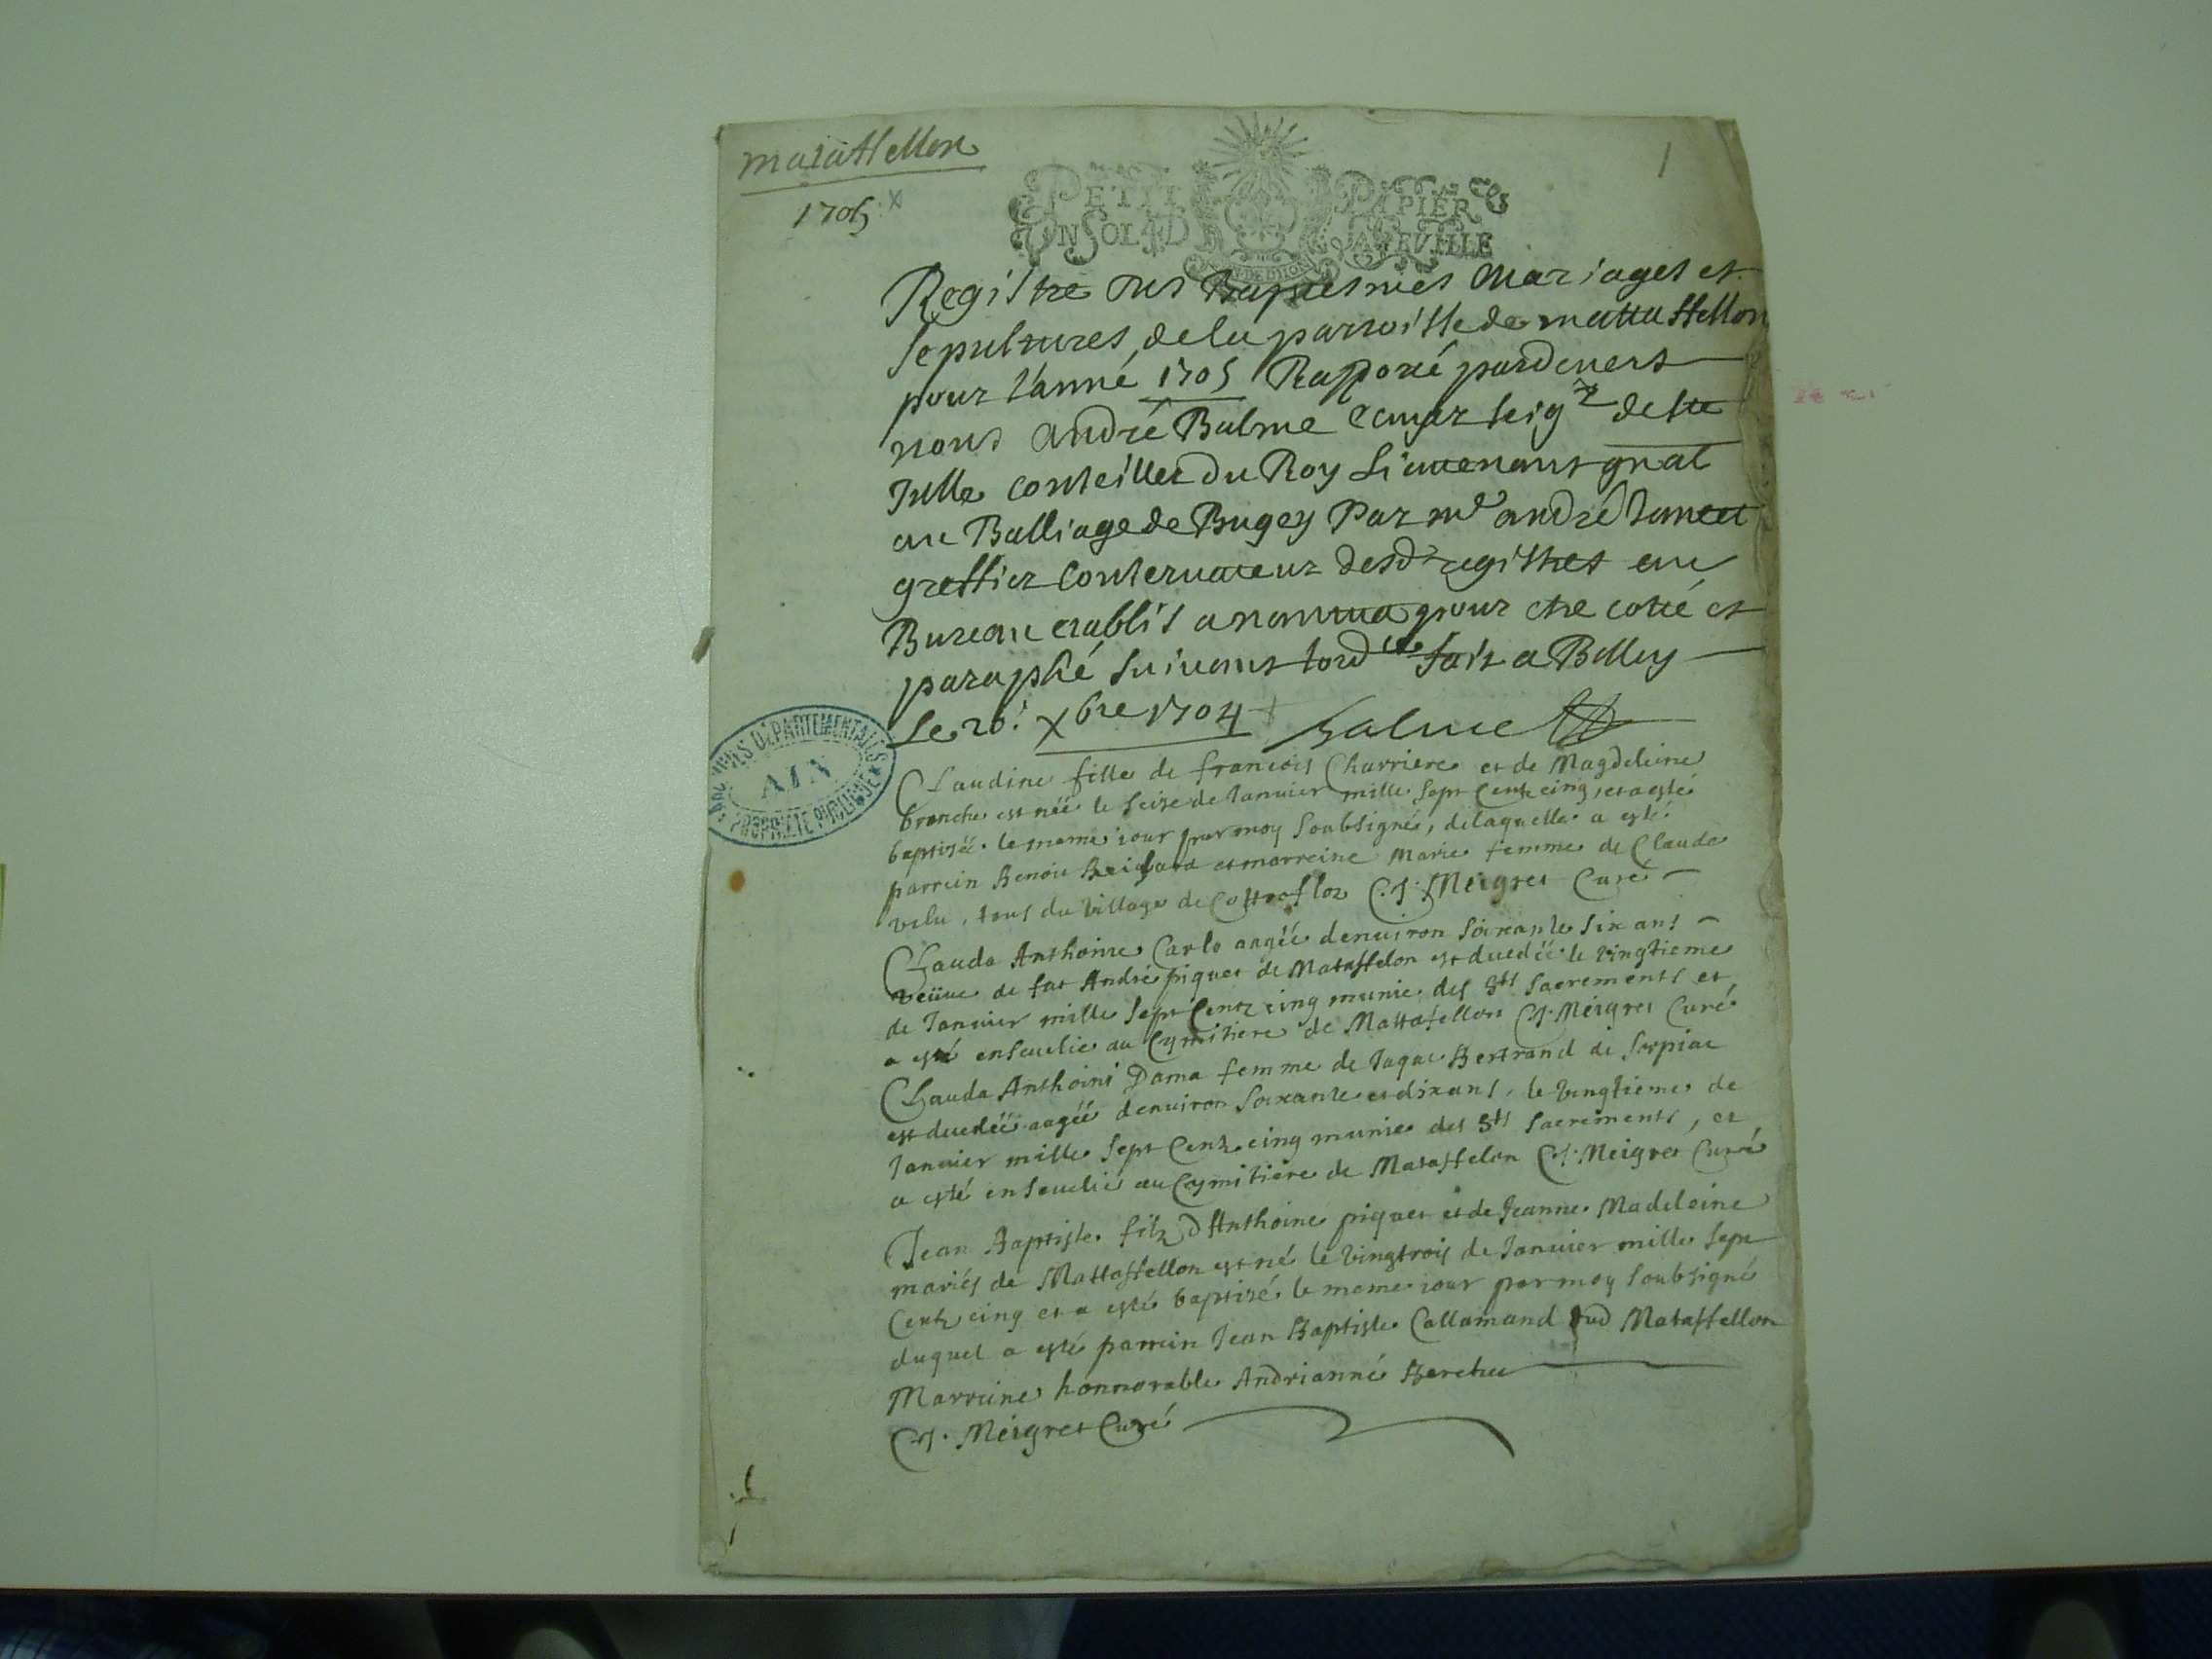 matassellon
1
1705 x
PETIT PAPIER
UN SOL 4 D LA FEUILLE
Registre des Baptesmes Mariages et
sepultures de la parroisse de mattassellon
pour l'anné 1705 Rapporté pardevers
nous André Balme Ecuyer seigr de Ste
Julle conseiller du Roy Lieutenant gnal
au Balliage de Bugey Par me andré
greffier conservateur desd registres au
Bureau etablis a nantua pour etre cotté et
paraphé suivant lordce fait a Belley
le 20e xbre 1704 Balme
ARCHIVES DÉPARTEMENTALES
AIN
PROPRIÉTÉ PUBLIQUE
Claudine fille de francois Charriere et de Magdeleine
branche est néé le seize de Janvier mille sept Centz cinq, et a esté
baptizéé le meme iour par moy soubsigné, de laquelle a esté
parrein Benoit et marreine Marie femme de Claude
velu, tous du village de Cottrofloz C.J. Meigret Curé
Clauda Anthoine Carlo aagéé denviron soixante six ans
veüue de fut André piquet de Matassellon est decedéé le vingtieme
de Janvier mille sept Centz cinq munie des Sts sacrements et
a esté ensevelie au Cymitiere de Mattafellon C.J. Meigret Curé
Clauda Anthoini Dama femme de Jaque Bertrand de Sorpiat
est decedéé aagéé denviron soixante et dix ans, le vingtieme de
Janvier mille sept Centz cinq munie des Sts sacrements, et
a esté ensevelie au Cymitiere de Matassellon C.J. Meigret Curé
Jean Baptiste filz d'Anthoine piquet et de Jeanne Madeleine
mariés de Mattassellon est né le vingtrois de Janvier mille sept
Centz cinq et a esté baptizé le meme iour par moy soubsigné
duquel a esté parrein Jean Baptiste Callamand dud Matassellon
Marreine honnorable Andrianne
C.J. Meigret Curé